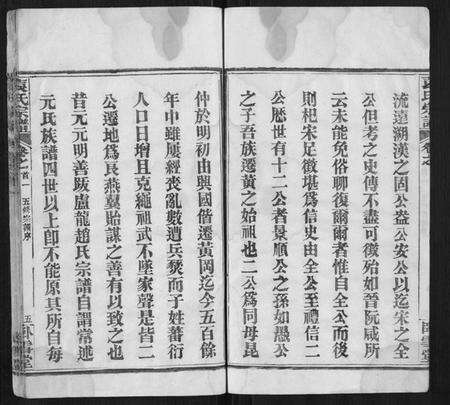 流遠溯漢之固公盎公安公以迄宋之全
公但考之史傳不盡可徵殆如晉阮咸所
云未能免俗聊復爾爾者惟自全公而後
則杞宋足徵堪為信史由全公至禮信二
公歷世有十二公者景順公之孫如愚公
之子吾族遷黃之始祖也二公為同母昆
仲於明初由與國偕遷黃岡迄今五百餘
年中雖屢經喪亂數遭兵燹而子姓蕃衍
人口日增且克繩祖武不墜家聲是皆二
公遷地為良燕翼貽謀之善有以致之也
昔元元明善跋盧龍趙氏宗譜自謂常述
元氏族譜四世以上卽不能原其所自每
袁氏宗譜
卷之首一
五修宗譜序
五
臥雪堂